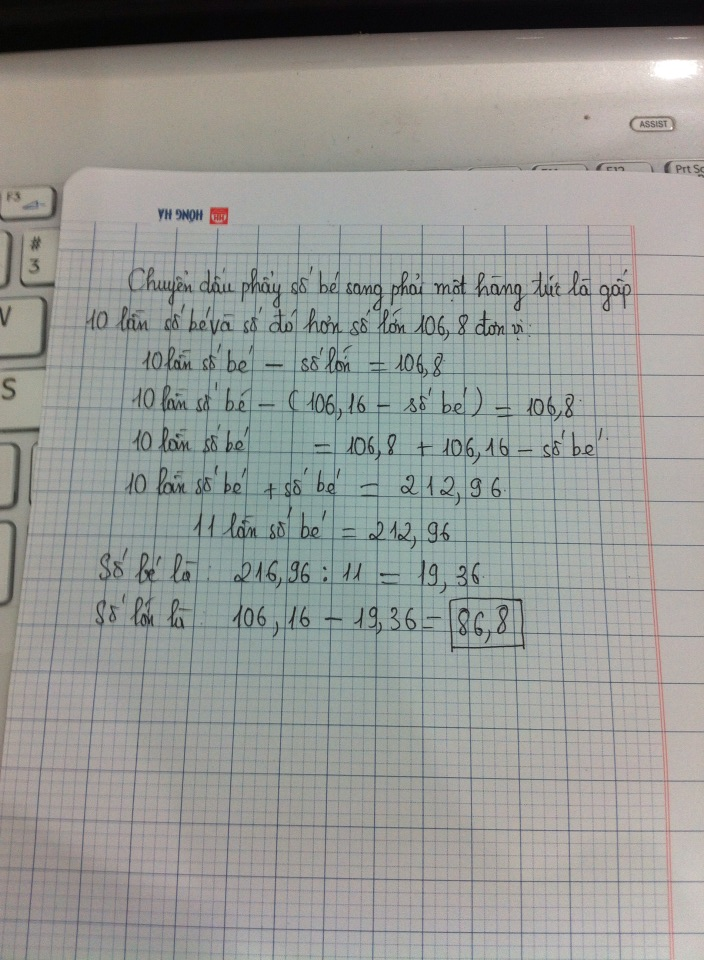 ASSIST
Prt Sc
F3
#
3
V
S
HONG HA
Chuyển dấu phẩy số bé sang phải một hàng tức là gấp
10 lần số bé và số đó hơn số lớn 106,8 đơn vị:
10 lần số bé - số lớn = 106,8
10 lần số bé - (106,16 - số bé) = 106,8.
10 lần số bé = 106,8 + 106,16 - số bé
10 lần số bé + số bé = 212,96.
11 lần số bé = 212,96
Số bé là: 216,96 : 11 = 19,36.
Số lớn là: 106,16 - 19,36 = 86,8